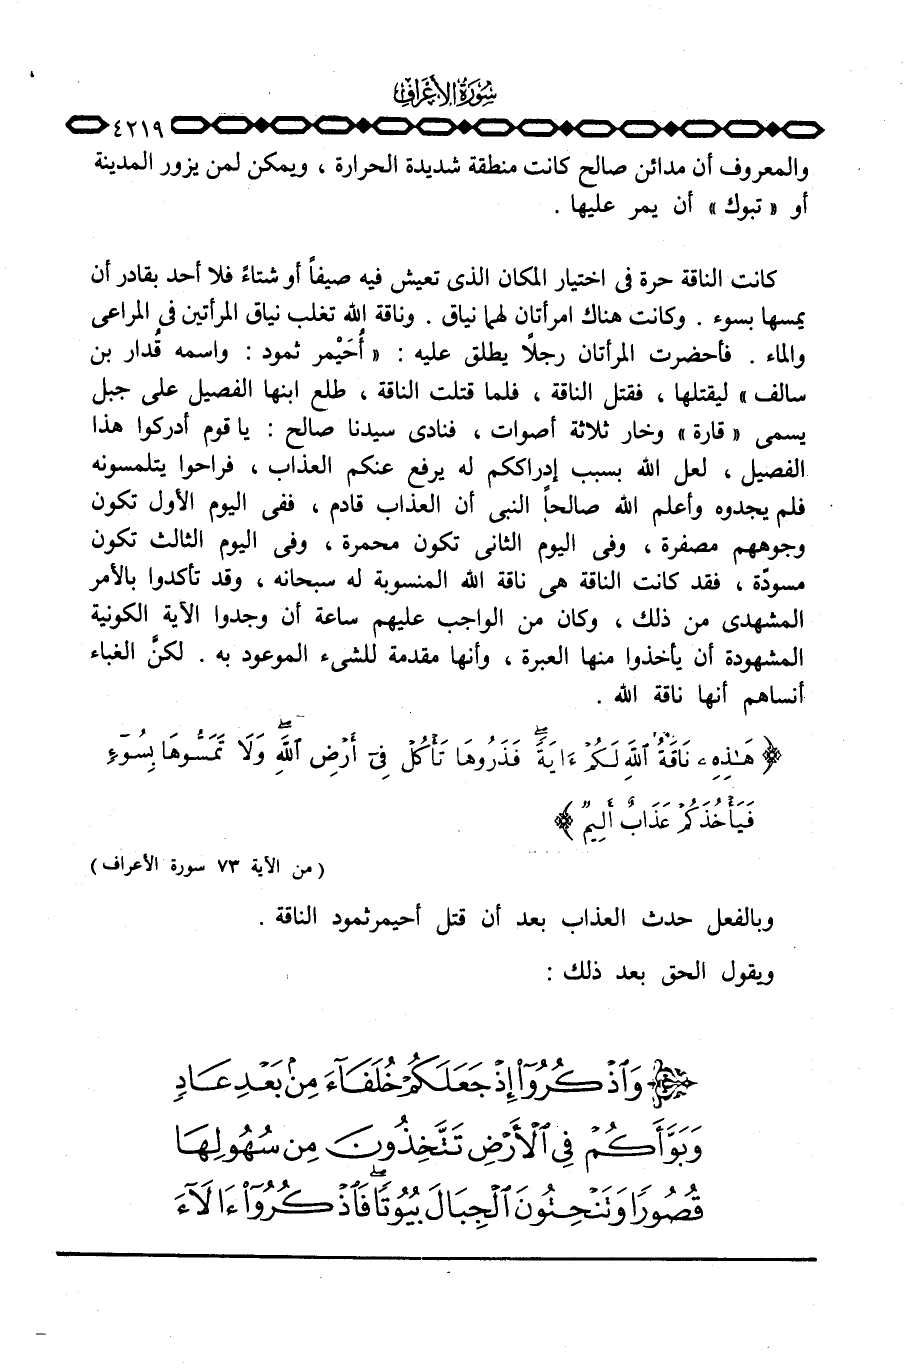 سُورَةُ الأَعْرَافِ
٤٢١٩
والمعروف أن مدائن صالح كانت منطقة شديدة الحرارة ، ويمكن لمن يزور المدينة
أو « تبوك » أن يمر عليها .
كانت الناقة حرة فى اختيار المكان الذى تعيش فيه صيفاً أو شتاءً فلا أحد بقادر أن
يمسها بسوء . وكانت هناك امرأتان لهما نياق . وناقة الله تغلب نياق المرأتين فى المراعى
والماء . فأحضرت المرأتان رجلًا يطلق عليه : « أُحَيْمر ثمود : واسمه قُدار بن
سالف » ليقتلها ، فقتل الناقة ، فلما قتلت الناقة ، طلع ابنها الفصيل على جبل
يسمى « قارة » وخار ثلاثة أصوات ، فنادى سيدنا صالح : يا قوم أدركوا هذا
الفصيل ، لعل الله بسبب إدراككم له يرفع عنكم العذاب ، فراحوا يتلمسونه
فلم يجدوه وأعلم الله صالحاً النبى أن العذاب قادم ، ففى اليوم الأول تكون
وجوههم مصفرة ، وفى اليوم الثانى تكون محمرة ، وفى اليوم الثالث تكون
مسودّة ، فقد كانت الناقة هى ناقة الله المنسوبة له سبحانه ، وقد تأكدوا بالأمر
المشهدى من ذلك ، وكان من الواجب عليهم ساعة أن وجدوا الآية الكونية
المشهودة أن يأخذوا منها العبرة ، وأنها مقدمة للشىء الموعود به . لكنَّ الغباء
أنساهم أنها ناقة الله .
﴿ هَـٰذِهِۦ نَاقَةُ ٱللَّهِ لَكُمْ ءَايَةً ۖ فَذَرُوهَا تَأْكُلْ فِىٓ أَرْضِ ٱللَّهِ ۖ وَلَا تَمَسُّوهَا بِسُوٓءٍ
فَيَأْخُذَكُمْ عَذَابٌ أَلِيمٌ ﴾
( من الآية ٧٣ سورة الأعراف )
وبالفعل حدث العذاب بعد أن قتل أحيمرثمود الناقة .
ويقول الحق بعد ذلك :
وَٱذْكُرُوٓا۟ إِذْ جَعَلَكُمْ خُلَفَآءَ مِنۢ بَعْدِ عَادٍ
وَبَوَّأَكُمْ فِى ٱلْأَرْضِ تَتَّخِذُونَ مِن سُهُولِهَا
قُصُورًا وَتَنْحِتُونَ ٱلْجِبَالَ بُيُوتًا ۖ فَٱذْكُرُوٓا۟ ءَالَآءَ